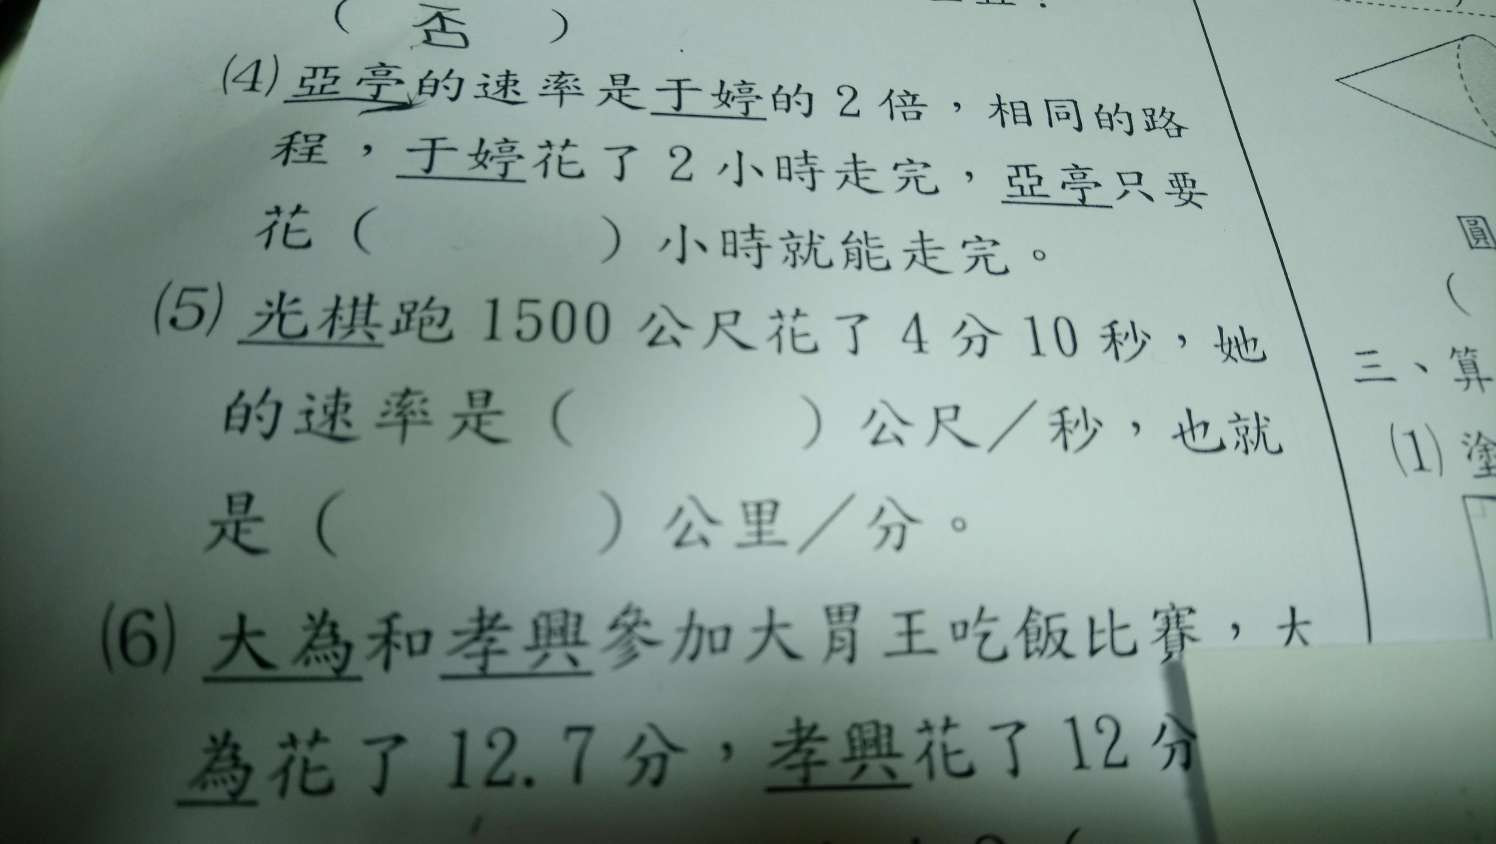 ( 否 )
(4) 亞亭的速率是于婷的 2 倍，相同的路
程，于婷花了 2 小時走完，亞亭只要
花 (　　　) 小時就能走完。
(5) 光棋跑 1500 公尺花了 4 分 10 秒，她
的速率是 (　　　) 公尺／秒，也就
是 (　　　) 公里／分。
(6) 大為和孝興參加大胃王吃飯比賽，大
為花了 12.7 分，孝興花了 12 分
圓
(
三、算
(1) 塗